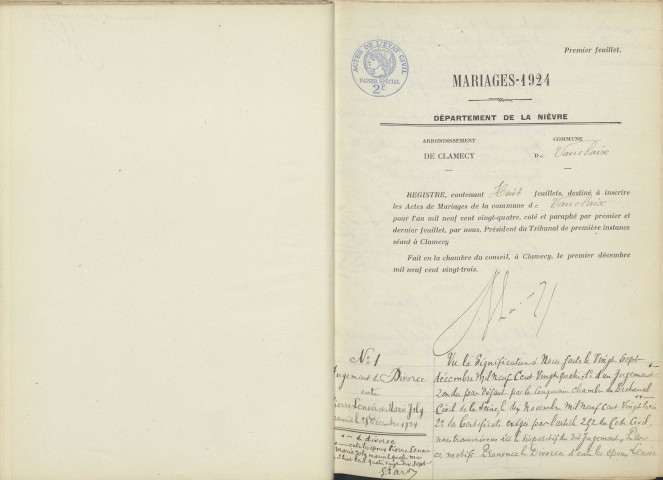 Premier feuillet.
ACTES DE L'ETAT CIVIL
PAPIER SPECIAL
2F
MARIAGES-1924
DÉPARTEMENT DE LA NIÈVRE
ARRONDISSEMENT
DE CLAMECY
COMMUNE
De Vauclaix
REGISTRE, contenant Huit feuillets, destiné à inscrire
les Actes de Mariages de la commune de Vauclaix
pour l'an mil neuf cent vingt-quatre, coté et paraphé par premier et
dernier feuillet, par nous, Président du Tribunal de première instance
séant à Clamecy
Fait en la chambre du conseil, à Clamecy, le premier décembre
mil neuf cent vingt-trois.
No 1
Jugement de Divorce
entre
Pierre Lenoir et Marie Joly
Décembre 1924
divorce
Pierre Lenoir
Marie Joly
Vu la Signification à Nous faite le Vingt Sept
décembre Mil Neuf Cent Vingt quatre, 1º d'un Jugement
rendu par Défaut par la Cinquième chambre du Tribunal
Civil de la Seine, le dix Novembre Mil Neuf Cent Vingt trois
2º du Certificat exigé par l'article 252 du Code Civil,
nous transcrivons ici le dispositif du dit Jugement
ces motifs Prononce le Divorce d'entre les époux Lenoir